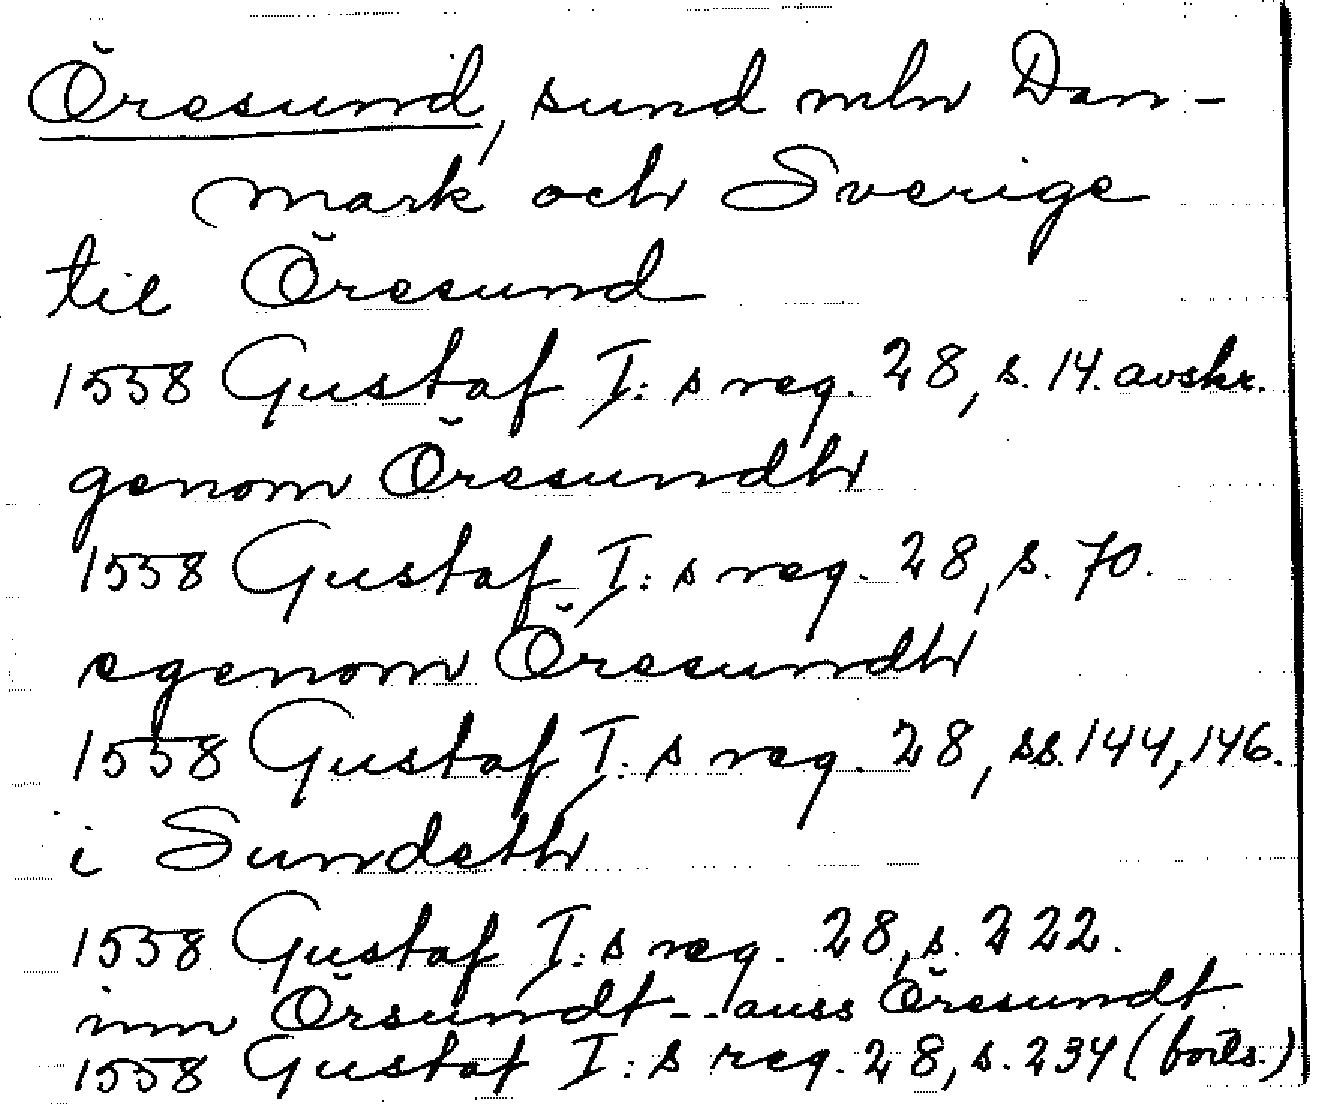 Öresund, sund mln Dan-
mark och Sverige
til Öresund
1558 Gustaf I:s reg. 28, s. 14. avskr.
genom Öresundh
1558 Gustaf I:s reg. 28, s. 70.
egenom Öresundh
1558 Gustaf I:s reg. 28, ss. 144, 146.
i Sundeth
1558 Gustaf I:s reg. 28, s. 222.
inn Örsundt -- auss Öresundt
1558 Gustaf I:s reg. 28, s. 234 (forts.)